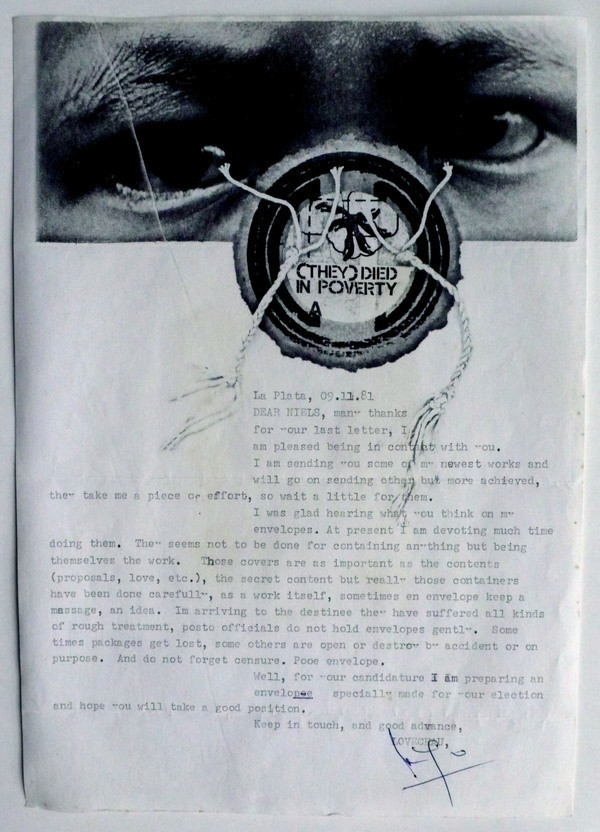 (THEY) DIED
IN POVERTY
A
La Plata, 09.11.81
DEAR NIELS, many thanks
for your last letter, I
am pleased being in contact with you.
I am sending you some of my newest works and
will go on sending other but more achieved,
they take me a piece of effort, so wait a little for them.
I was glad hearing what you think on my
envelopes. At present I am devoting much time
doing them. They seems not to be done for containing anything but being
themselves the work. Those covers are as important as the contents
(proposals, love, etc.), the secret content but really those containers
have been done carefully, as a work itself, sometimes en envelope keep a
massage, an idea. Im arriving to the destinee they have suffered all kinds
of rough treatment, posto officials do not hold envelopes gently. Some
times packages get lost, some others are open or destroy by accident or on
purpose. And do not forget censure. Pooe envelope.
Well, for your candidature I am preparing an
envelopee specially made for your election
and hope you will take a good position.
Keep in touch, and good advance,